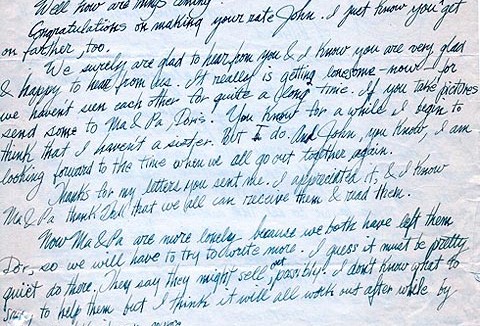 Well how are things coming?
Congratulations on making your rate John. I just know you get
on farther, too.
We surely are glad to hear from you & I know you are very glad
& happy to hear from us. It really is getting lonesome - now - for
we haven't seen each other for quite a long time. If you take pictures
send some to Ma & Pa, Doris. You know for a while I begin to
think that I haven't a sister. But I do. And John, you know, I am
looking forward to the time when we all go out together again.
Thanks for my letters you sent me. I appreciated it, & I know
Ma & Pa thank that we all can receive them & read them.
Now Ma & Pa are more lonely because we both have left them
Dor, so we will have to try to write more. I guess it must be pretty
quiet do there. They say they might sell out possibly. I don't know what to
say to help them but I think it will all work out after while by